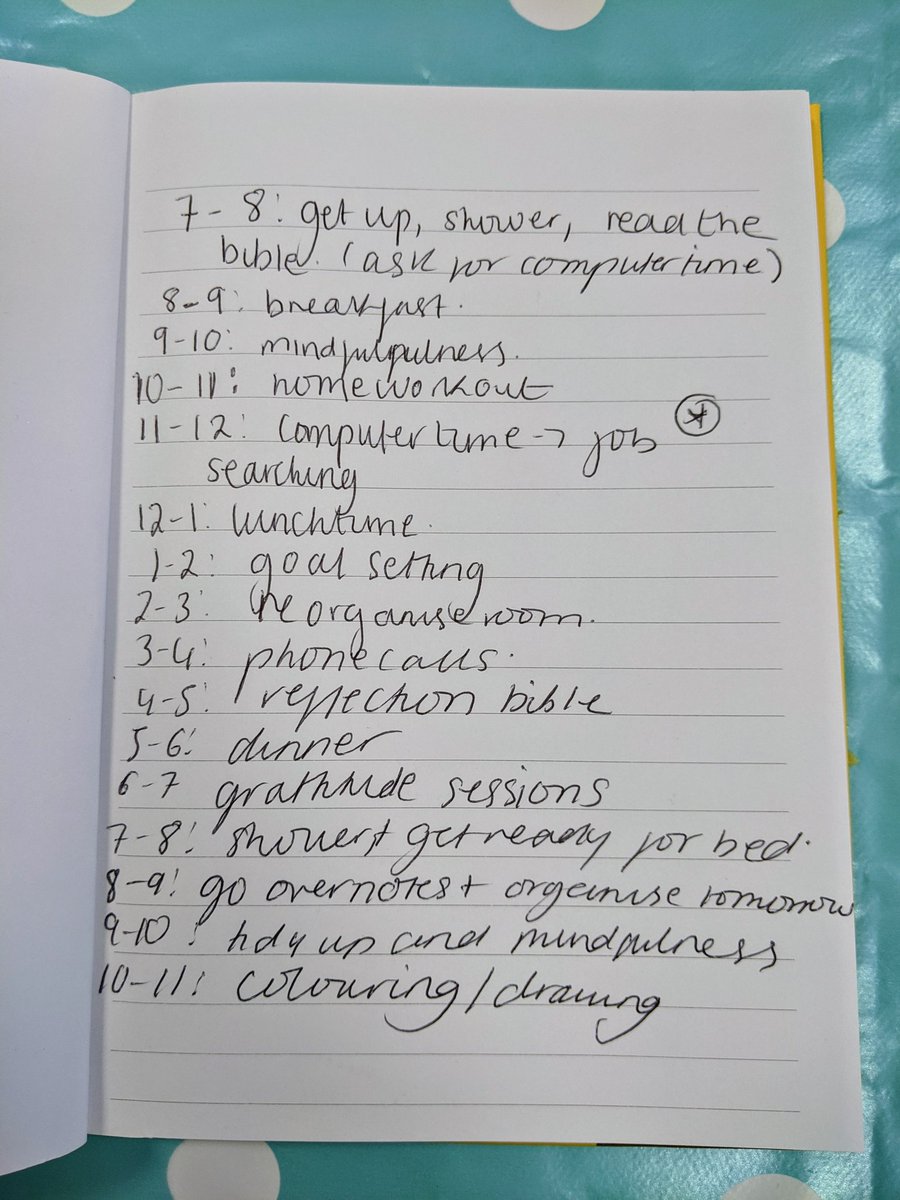 7-8: get up, shower, read the
bible. (ask for computer time)
8-9: breakfast.
9-10: mindfulfulness.
10-11: home workout
11-12: computer time → job *
searching
12-1: lunchtime.
1-2: goal setting
2-3: reorganise room.
3-4: phone calls.
4-5: reflection bible
5-6: dinner
6-7 gratitude sessions
7-8: shower + get ready for bed.
8-9: go over notes + organise tomorrow
9-10: tidy up and mindfulness
10-11: colouring/drawing